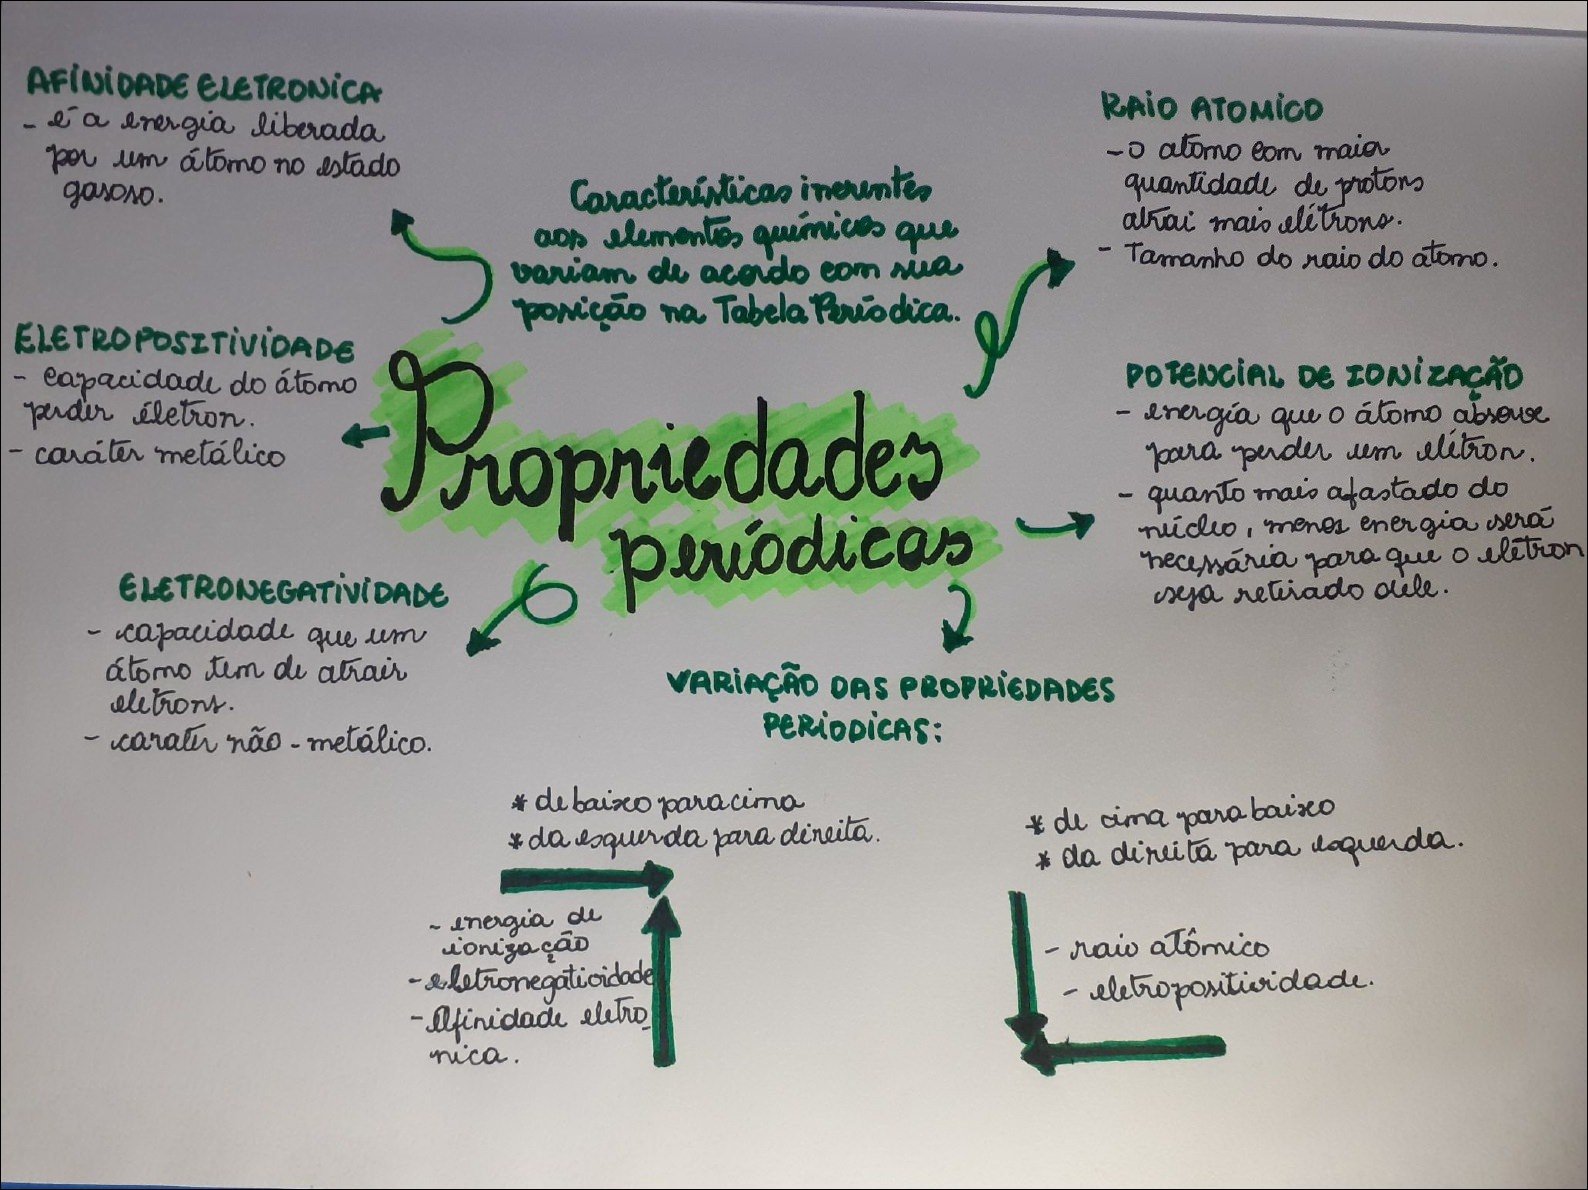 AFINIDADE ELETRONICA
- é a energia liberada
por um átomo no estado
gasoso.
RAIO ATOMICO
- o atomo com maior
quantidade de protons
atrai mais elétrons.
- Tamanho do raio do átomo.
Características inerentes
aos elementos químicos que
variam de acordo com sua
posição na Tabela Periódica.
ELETROPOSITIVIDADE
- capacidade do átomo
perder életron.
- caráter metálico
Propriedades
periódicas
POTENCIAL DE IONIZAÇÃO
- energia que o átomo absorve
para perder um elétron.
- quanto mais afastado do
núcleo, menos energia será
necessária para que o elétron
seja retirado dele.
ELETRONEGATIVIDADE
- capacidade que um
átomo tem de atrair
eletrons.
- caratér não-metálico.
VARIAÇÃO DAS PROPRIEDADES
PERIODICAS:
* de baixo para cima
* da esquerda para direita.
- energia de
ionização
- eletronegatividade
- Afinidade eletro_
nica.
* de cima para baixo
* da direita para esquerda.
- raio atômico
- eletropositividade.